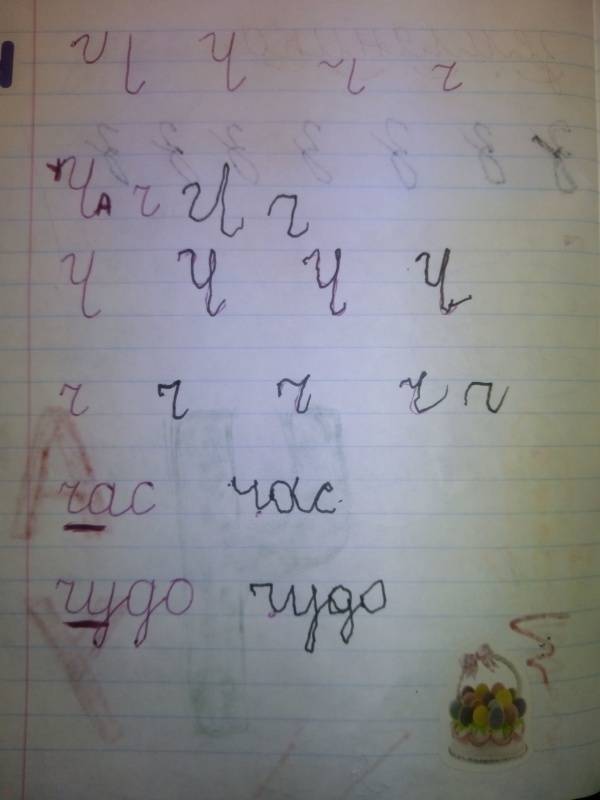 Ча ч Ч ч
Ч Ч Ч Ч
ч ч ч ч ч
час час
чудо чудо